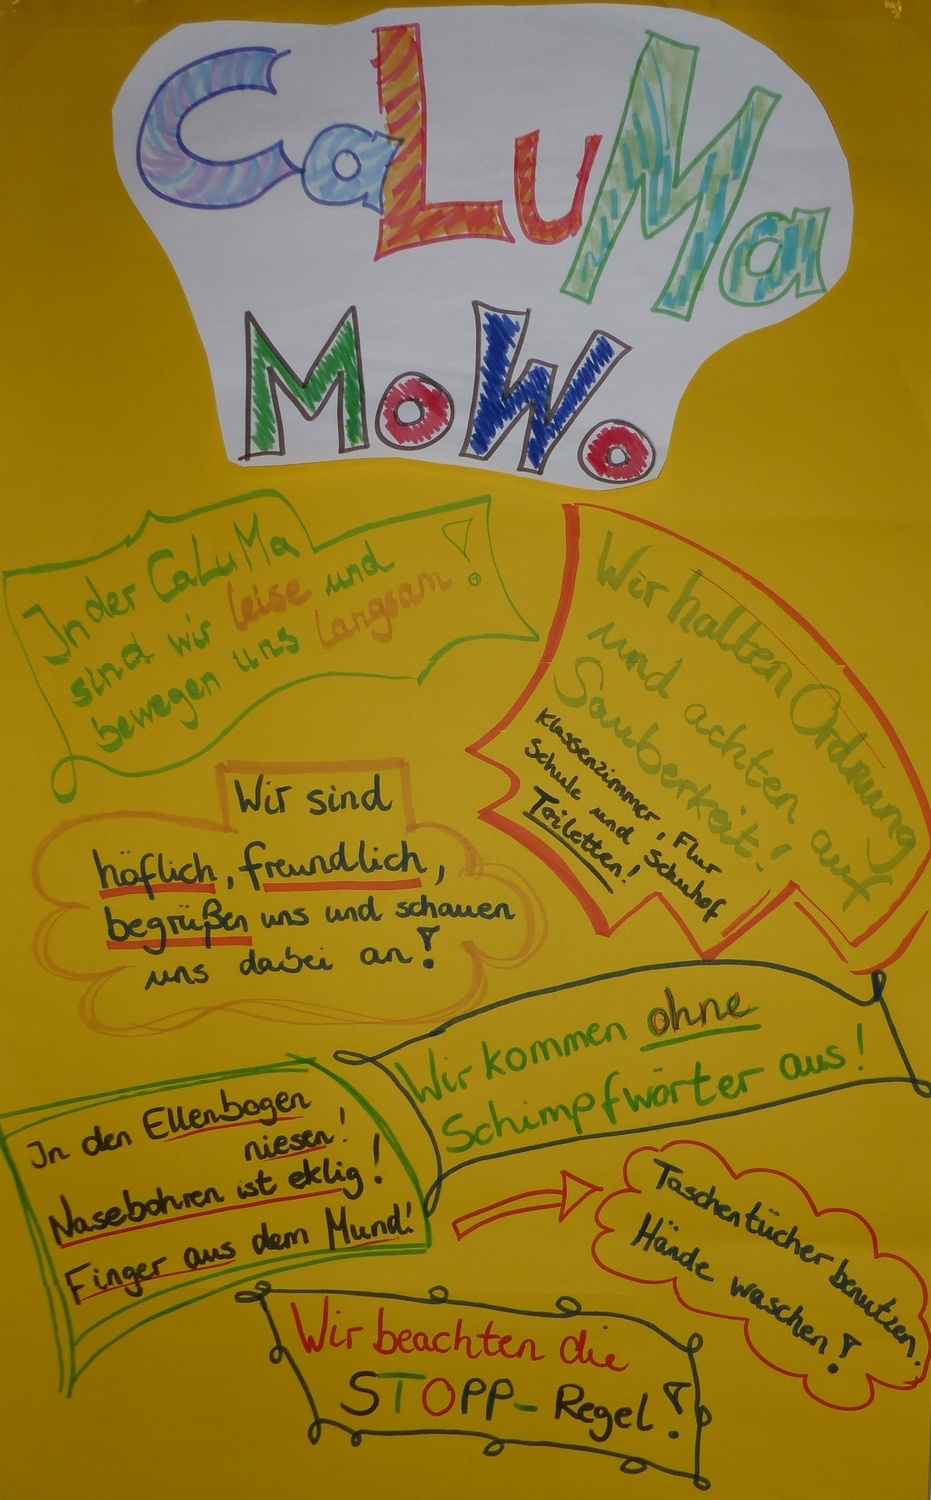 CaLuMa
MoWo
In der CaLuMa
sind wir leise und
bewegen uns langsam!
Wir halten Ordnung
und achten auf
Sauberkeit!
Klassenzimmer, Flur
Schule und Schulhof
Toiletten!
Wir sind
höflich, freundlich,
begrüßen uns und schauen
uns dabei an!
Wir kommen ohne
Schimpfwörter aus!
In den Ellenbogen
niesen!
Nasebohren ist eklig!
Finger aus dem Mund!
Taschentücher benutzen.
Hände waschen!
Wir beachten die
STOPP-Regel!